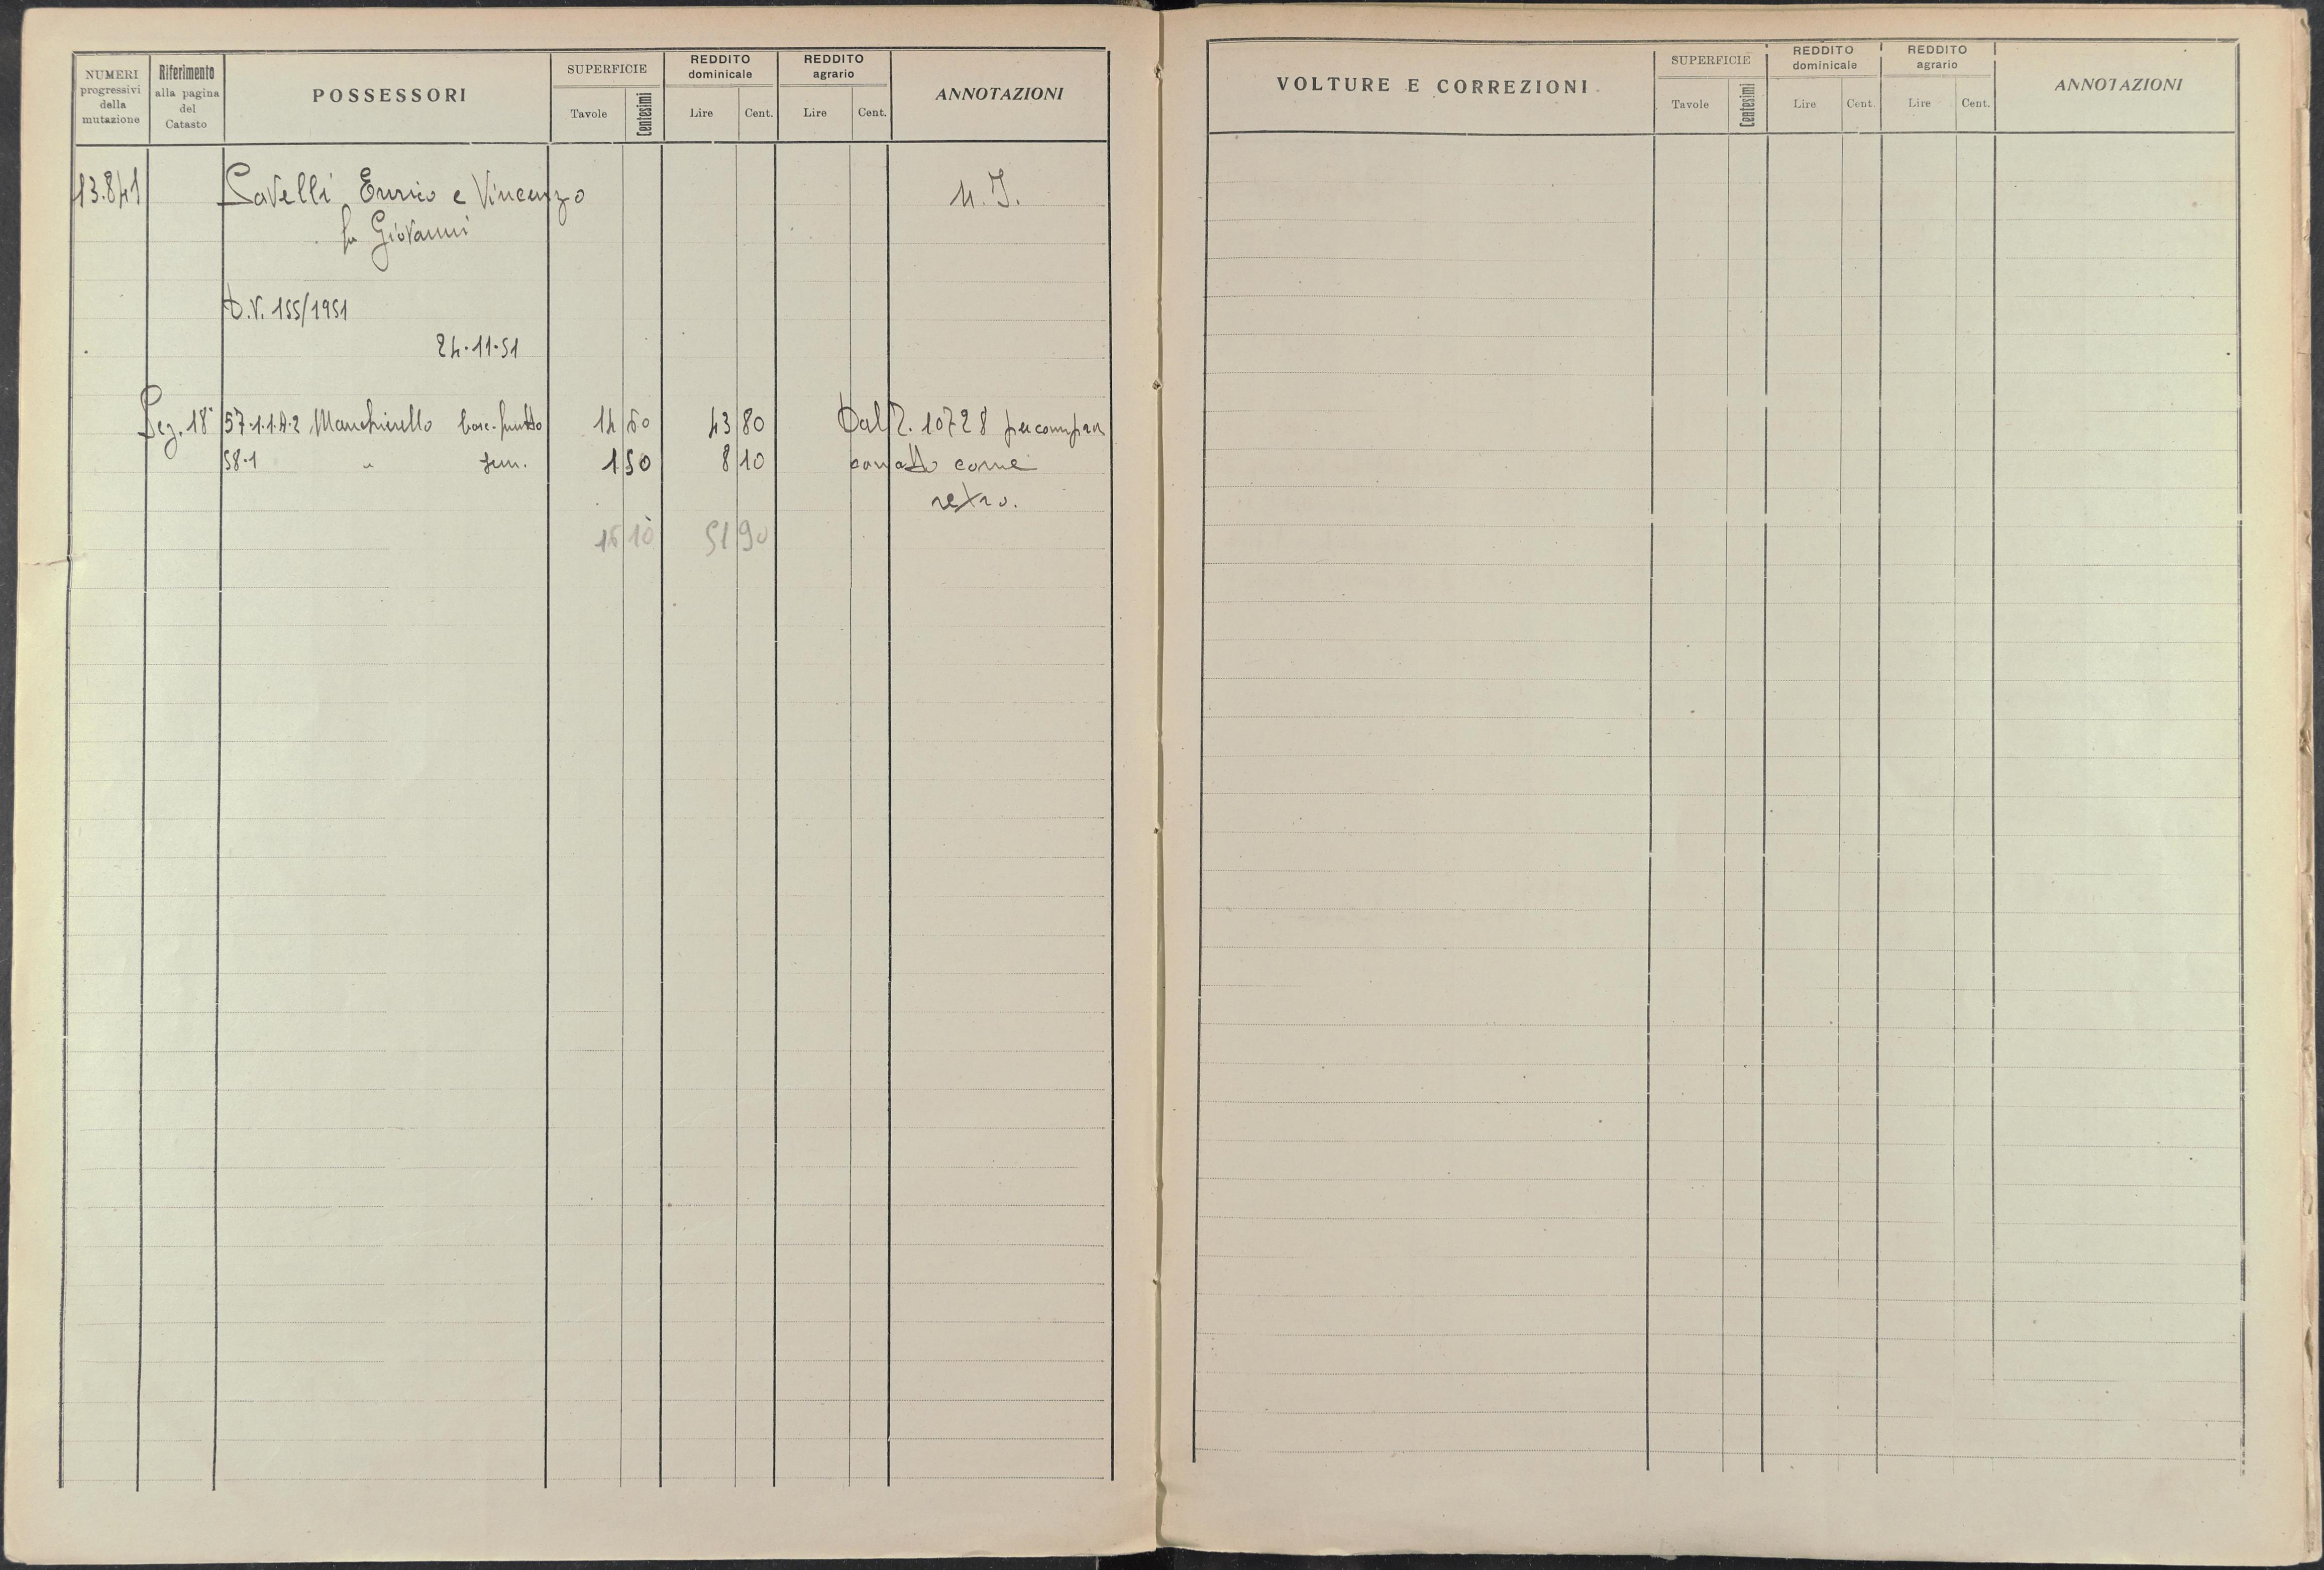 NUMERI progressivi della mutazione
Riferimento alla pagina del Catasto
POSSESSORI
SUPERFICIE
Tavole
Centesimi
REDDITO dominicale
Lire
Cent.
REDDITO agrario
Lire
Cent.
ANNOTAZIONI
13.841
Savelli Enrico e Vincenzo
fu Giovanni
U.I.
D.V. 155/1951
24.11.51
Sez. 18ª 57.1.1.A.2 Manchiarello bosc. frutto 14 60 43 80 Dal 10728 per compra
58.1 " sem. 1 50 8 10 con atto come
retro.
16 10 51 90
VOLTURE E CORREZIONI
SUPERFICIE
Tavole
Centesimi
REDDITO dominicale
Lire
Cent.
REDDITO agrario
Lire
Cent.
ANNOTAZIONI